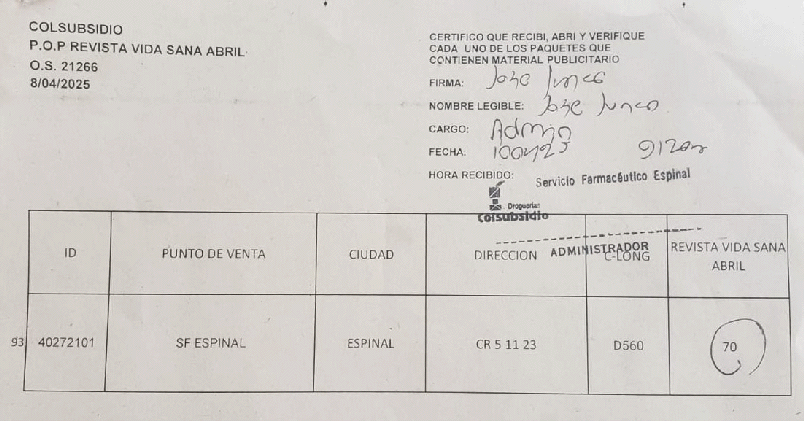 COLSUBSIDIO
P.O.P REVISTA VIDA SANA ABRIL
O.S. 21266
8/04/2025
CERTIFICO QUE RECIBI, ABRI Y VERIFIQUE
CADA UNO DE LOS PAQUETES QUE
CONTIENEN MATERIAL PUBLICITARIO
FIRMA: Jose Junco
NOMBRE LEGIBLE: Jose Junco
CARGO: Admin
FECHA:
HORA RECIBIDO:
Servicio Farmacéutico Espinal
Droguerías
colsubsidio
ADMINISTRADOR
ID PUNTO DE VENTA CIUDAD DIRECCION C-LONG REVISTA VIDA SANA
ABRIL
93 40272101 SF ESPINAL ESPINAL CR 5 11 23 D560 70